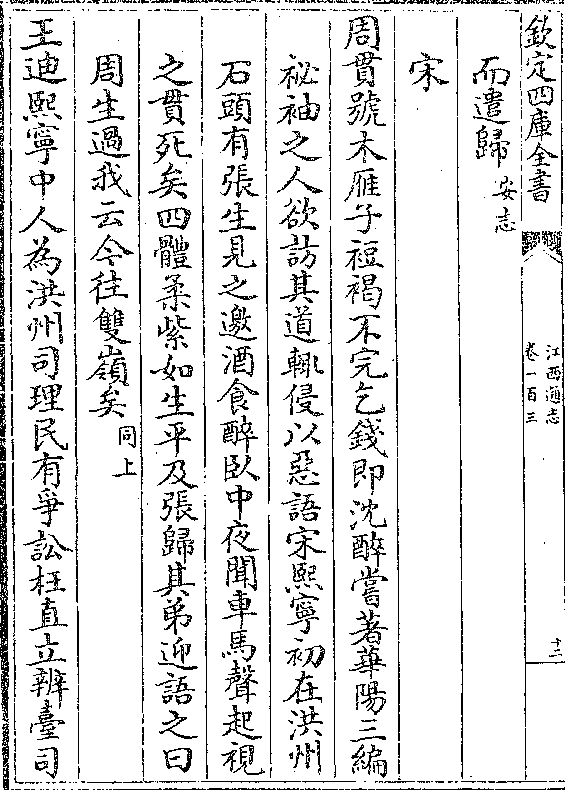 欽定四庫全書
江西通志
卷一百三
十二
而遣歸安志
宋
周貫號木雁子短褐不完乞錢即沈醉嘗著華陽三編
祕袖之人欲訪其道輙侵以惡語宋熙寧初在洪州
石頭有張生見之邀酒食醉臥中夜聞車馬聲起視
之貫死矣四體柔紫如生平及張歸其弟迎語之曰
周生過我云今往雙嶺矣同上
王迪熙寧中人為洪州司理民有爭訟枉直立辨臺司